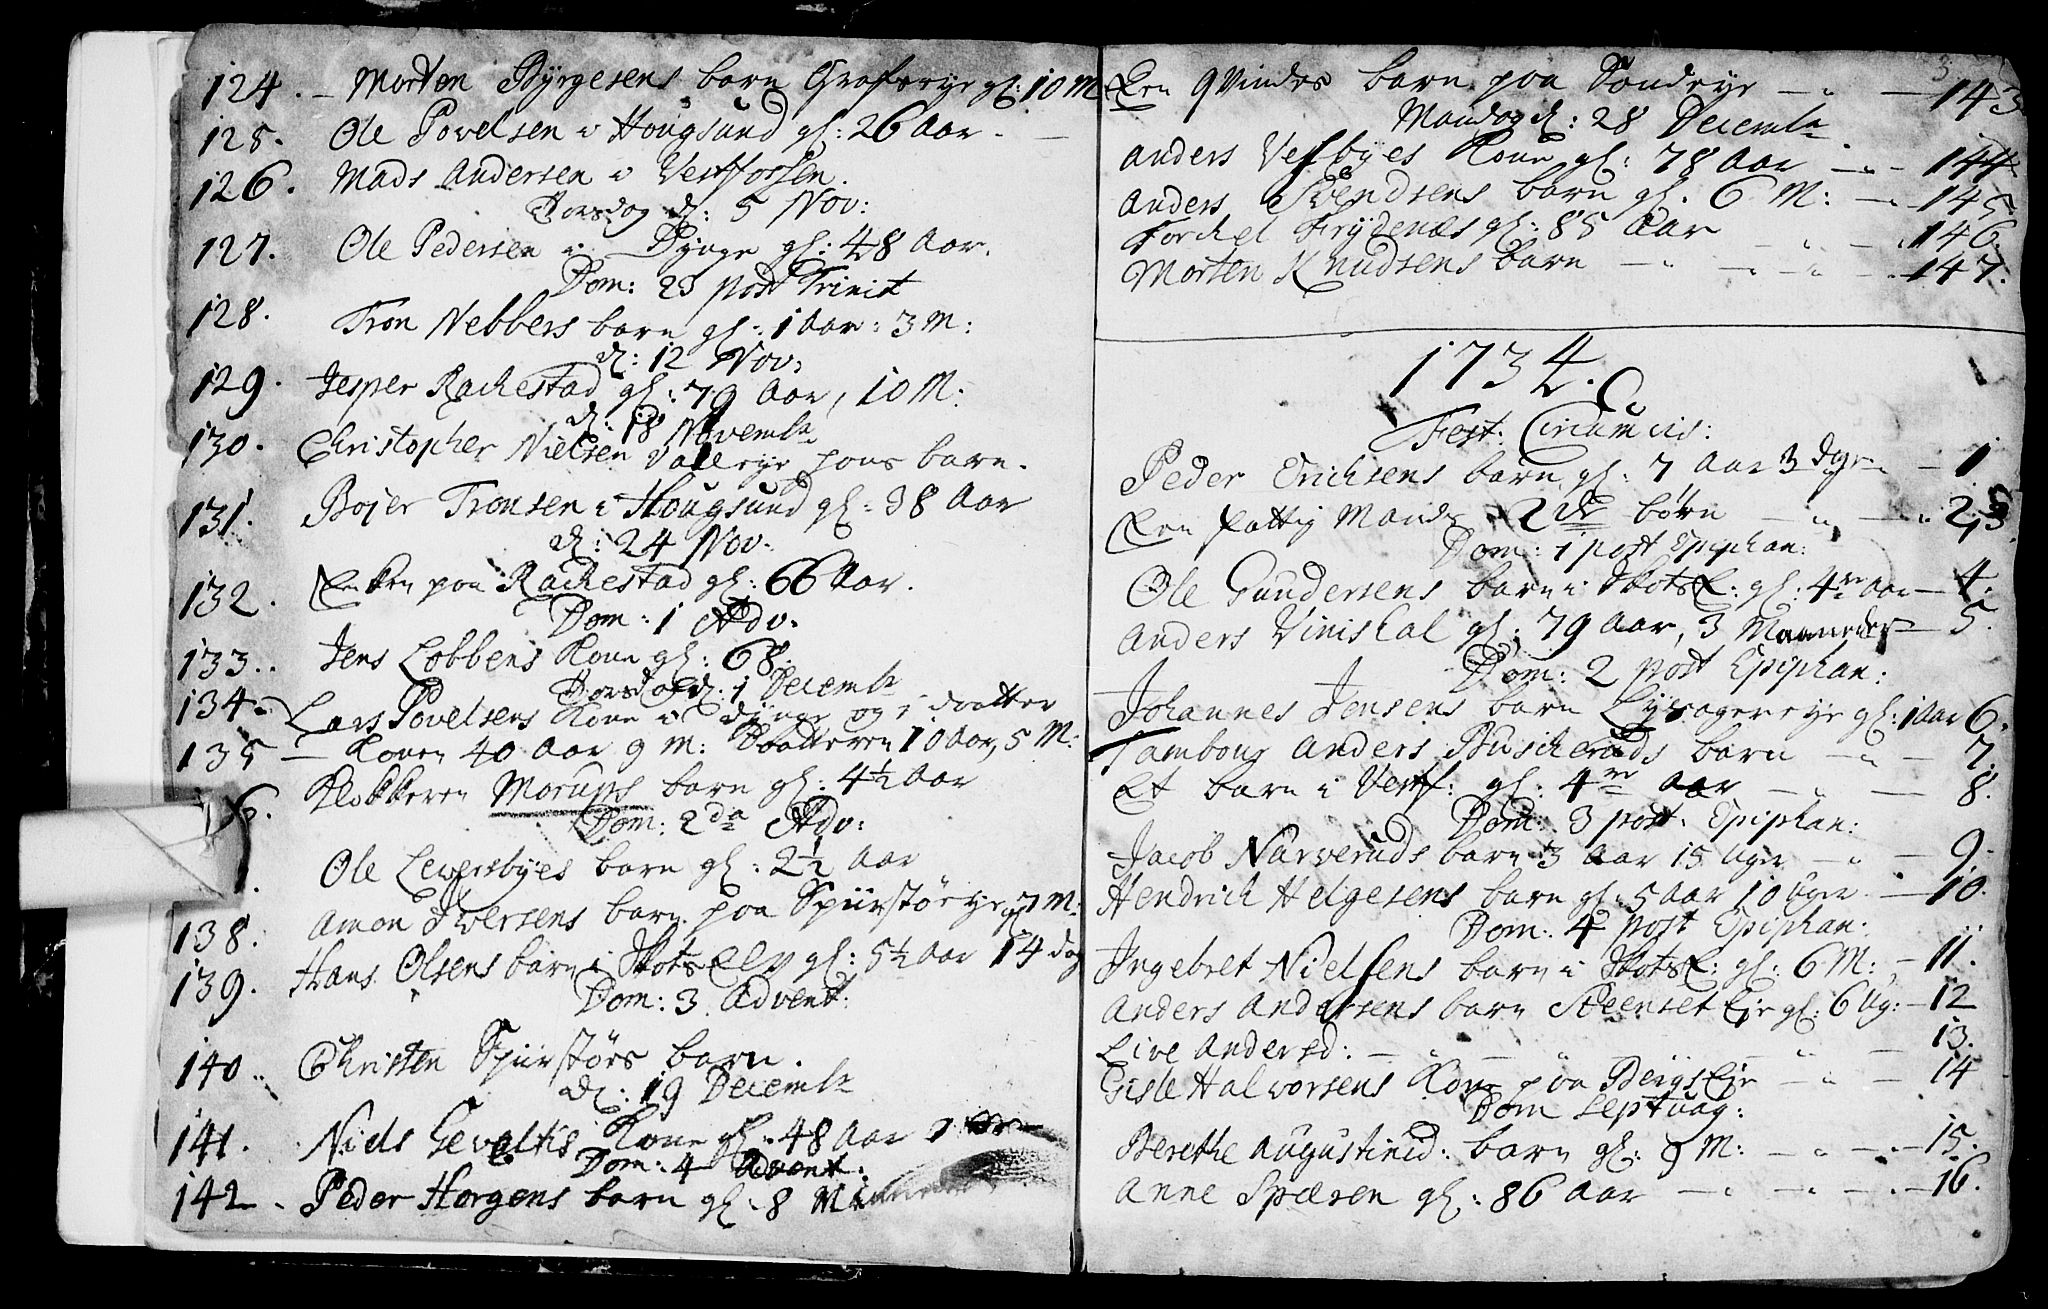 124. – Morten Byrgesens barn Grafsrye gl: 10 M
125. Ole Povelsen i Hougsund gl: 26 Aar. –
126. Mads Andersen i Vestfossen.
Torsdag d: 5 Nov:
127. Ole Pedersen i Dynge gl: 48 Aar.
Dom: 23 post Trinit
128. Tron Nebbers barn gl: 1 Aar: 3 M:
d: 12 Nov:
129. Jesper Rachestad gl: 79 Aar, 10 M:
d: 18 Novembr
130. Christopher Nielsen Vallerye hans barn.
131. Bojer Tronsen i Hougsund gl: 38 Aar
d: 24 Nov.
132. Enken paa Rachestad gl: 66 Aar.
Dom: 1 Adv.
133. Jens Lobbens Kone gl: 68.
Torsdag d: 1 Decembr
134. Lars Povelsens Kone i Dynge og 1 daatter
135 – Konen 40 Aar 9 M: Daatteren 10 Aar, 5 M:
6. Klokkeren Morups barn gl: 4½ Aar
Dom: 2da Adv:
Ole Lewersbyes barn gl: 2½ Aar
138. Amon Iwersens barn paa Spurstøeye gl 7 M:
139. Hans Olsens barn i Skotselv gl: 5½ Aar 14 dag
Dom: 3 Advent:
140. Christen Spurstørs barn.
d: 19 Decembr
141. Niels Gevaltis Kone gl: 48 Aar
Dom: 4 Advent:
142 – . Peder Horgens barn gl: 8
3
Een qvindes barn paa Sondeye – " – 143
Mandag d: 28 Decembr
Anders Vesbyes Kone gl: 78 Aar – " – 144
Anders Svendsens barn gl. 6 M: – " – 145
Torchel Frydenæs gl: 85 Aar – " – 146.
Morten Knudsens barn – " – " – " – 147.
1734.
Fest: Circumcis:
Peder Erichsens barn gl: 7 Aar 3 dyr – 1
Een fattig Mands 2de børn – " – " 2, 3
Dom: 1 post Epiphan:
Ole Gundersens barn i Skotsel: gl: 4re Aar – 4.
Anders Viniskal gl: 79 Aar, 3 Maaneder – 5.
Dom: 2 post Epiphan:
Johannes Jensens barn Lysagereye gl: 1 Aar 6.
Tambour Anders Buscheruds barn – " – 7.
Et barn i Vestf: gl: 4re Aar – " – 8.
Dom: 3 post. Epiphan:
Jacob Narveruds barn 3 Aar 15 Uger – " – 9.
Hendrich Helgesens barn gl: 5 Aar 10 Uger – 10.
Dom: 4 post Epiphan:
Ingebret Nielsens barn i Skotsl: gl: 6 M: – 11.
Anders Andersens barn Steenset Eje gl: 6 Ug: – 12
Live Andersd: – " – " – " – 13.
Gisle Halvorsens Kone paa Bergs Eje – " – 14
Dom Septuag:
Berethe Augustinid: barn gl: 9 M: – " – 15.
Anne Spæsen gl: 86 Aar – " – " – 16.